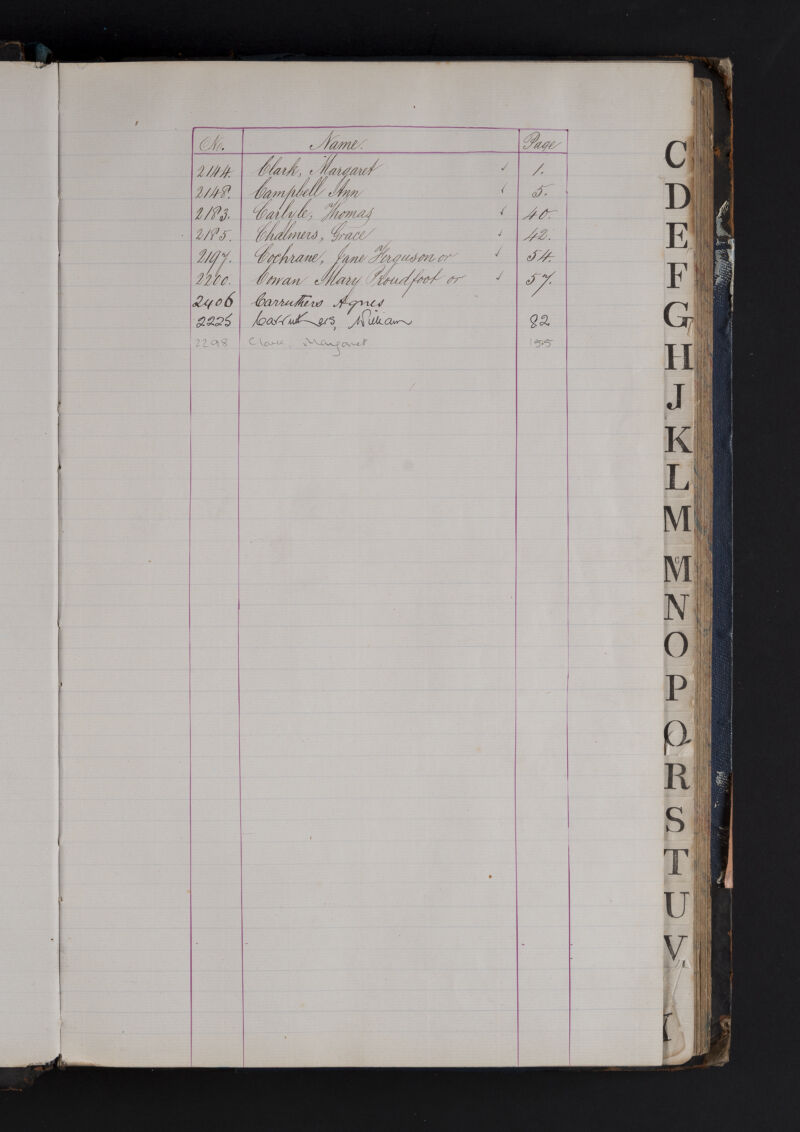 No. Name. Page
2144. Clark, Margaret √ 1.
2148. Campbell Ann √ 5.
2183. Carlyle, Thomas √ 40.
2185. Chalmers, Grace √ 42.
2197. Cochrane, Jane Ferguson or √ 54.
2200. Cowan Mary Proudfoot or √ 57.
2406 Carruthers Agnes
2225 Carruthers, William 82
2298 Clark, Margaret 155
C
D
E
F
G
H
J
K
L
M
Mc
N
O
P
Q
R
S
T
U
V